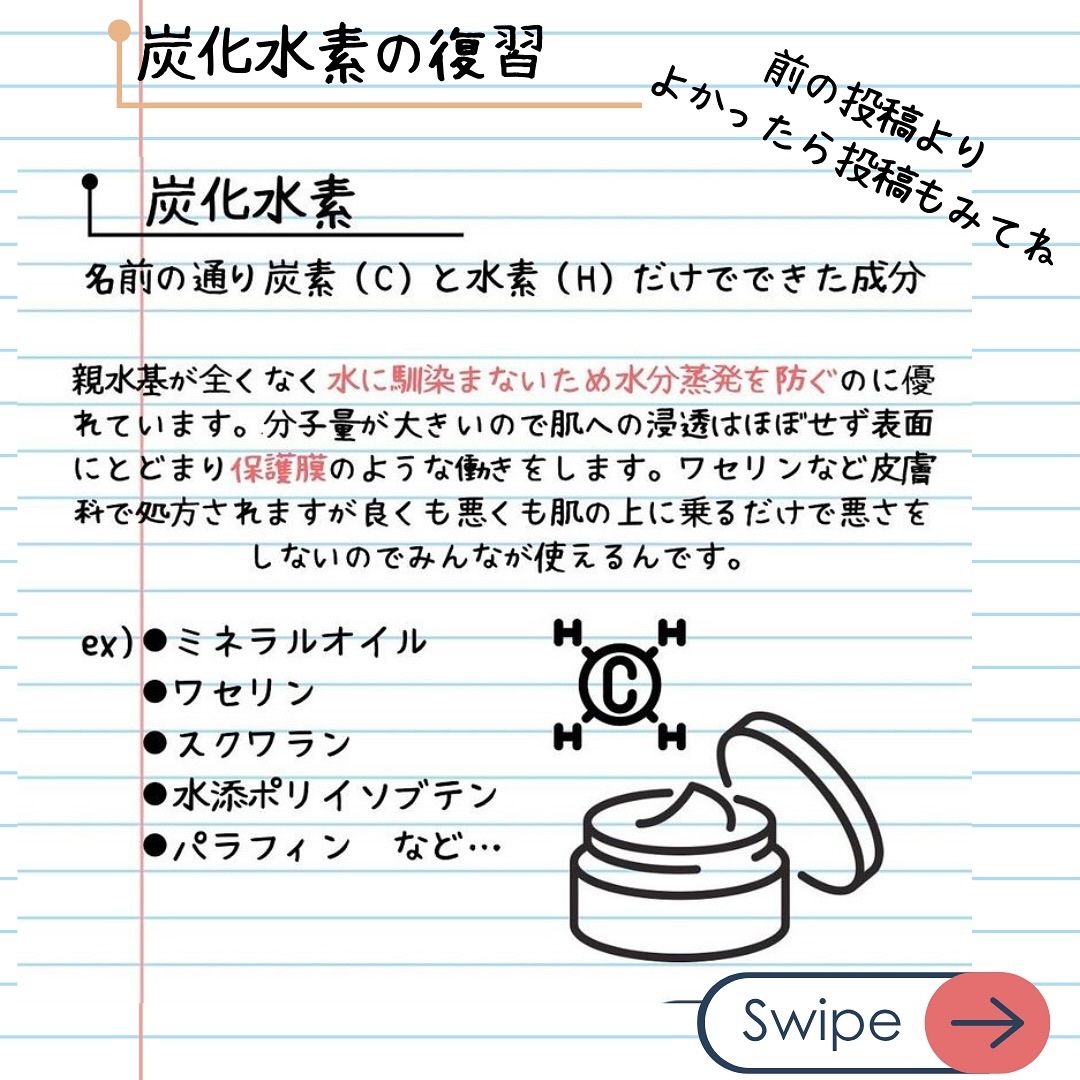 炭化水素の復習
前の投稿より
よかったら投稿もみてね
炭化水素
名前の通り炭素（C）と水素（H）だけでできた成分
親水基が全くなく水に馴染まないため水分蒸発を防ぐのに優
れています。分子量が大きいので肌への浸透はほぼせず表面
にとどまり保護膜のような働きをします。ワセリンなど皮膚
科で処方されますが良くも悪くも肌の上に乗るだけで悪さを
しないのでみんなが使えるんです。
ex)●ミネラルオイル
●ワセリン
●スクワラン
●水添ポリイソブテン
●パラフィン　など…
H H
C
H H
Swipe